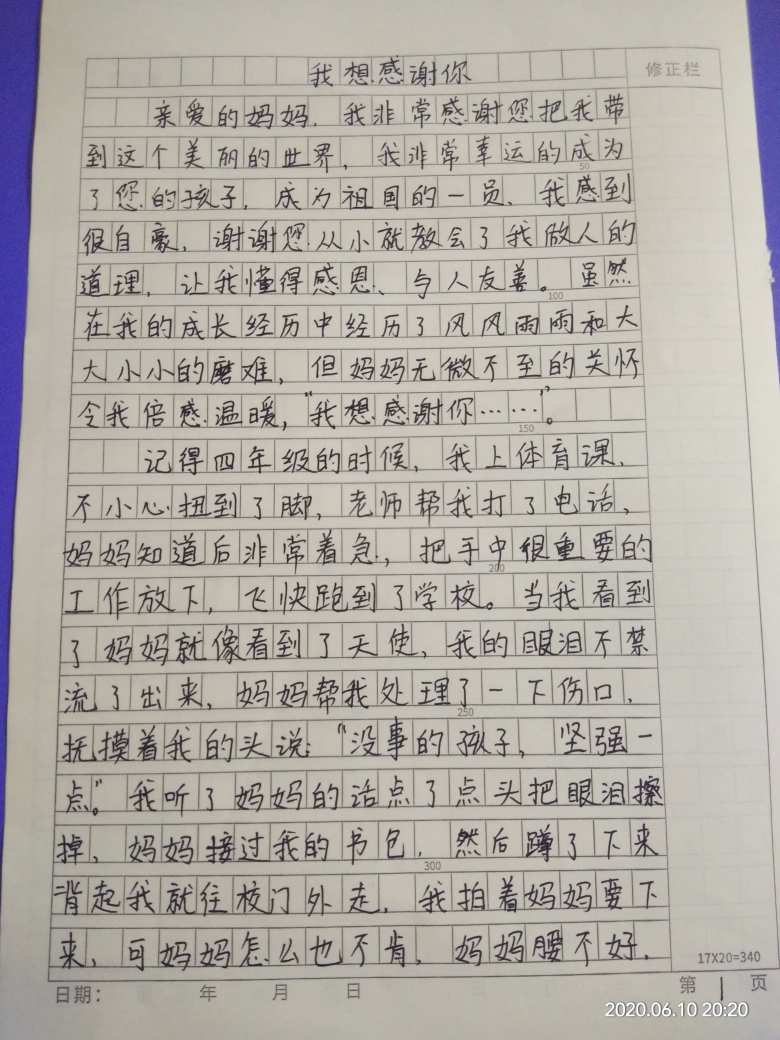 我想感谢你
修正栏
亲爱的妈妈，我非常感谢您把我带
到这个美丽的世界，我非常幸运的成为
50
了您的孩子，成为祖国的一员，我感到
很自豪，谢谢您从小就教会了我做人的
道理，让我懂得感恩、与人友善。虽然
100
在我的成长经历中经历了风风雨雨和大
大小小的磨难，但妈妈无微不至的关怀
令我倍感温暖，“我想感谢你……”。
150
记得四年级的时候，我上体育课，
不小心扭到了脚，老师帮我打了电话，
妈妈知道后非常着急，把手中很重要的
200
工作放下，飞快跑到了学校。当我看到
了妈妈就像看到了天使，我的眼泪不禁
流了出来，妈妈帮我处理了一下伤口，
250
抚摸着我的头说：“没事的孩子，坚强一
点。”我听了妈妈的话点了点头把眼泪擦
掉，妈妈接过我的书包，然后蹲了下来
300
背起我就往校门外走，我拍着妈妈要下
来，可妈妈怎么也不肯，妈妈腰不好，
17X20=340
日期： 年 月 日 第 1 页
2020.06.10 20:20